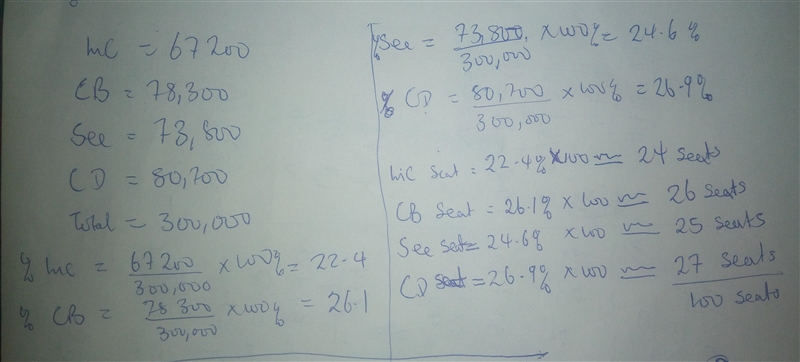 INC = 67200
CB = 78,300
See = 73,800
CD = 80,700
Total = 300,000
% INC = 67200/300,000 × 100% = 22.4
% CB = 78300/300,000 × 100% = 26.1
% See = 73,800/300,000 × 100% = 24.6%
% CD = 80,700/300,000 × 100% = 26.9%
INC Seat = 22.4% × 100 ≈ 24 Seats
CB Seat = 26.1% × 100 ≈ 26 Seats
See seat = 24.6% × 100 ≈ 25 Seats
CD seat = 26.9% × 100 ≈ 27 Seats
100 Seats